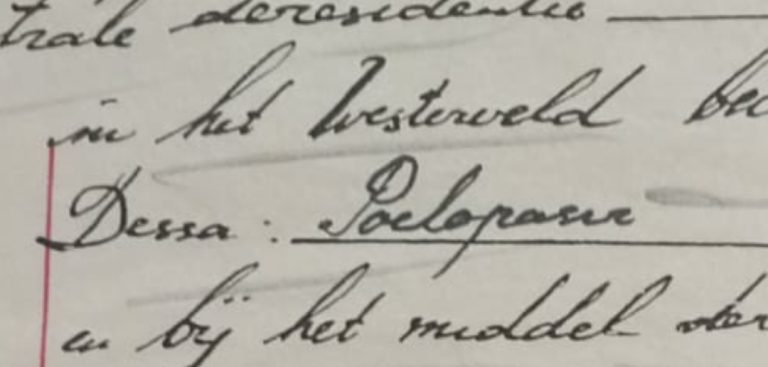 trale deresidentie
in het Westerveld
Dessa: Poelopasir
en bij het middel